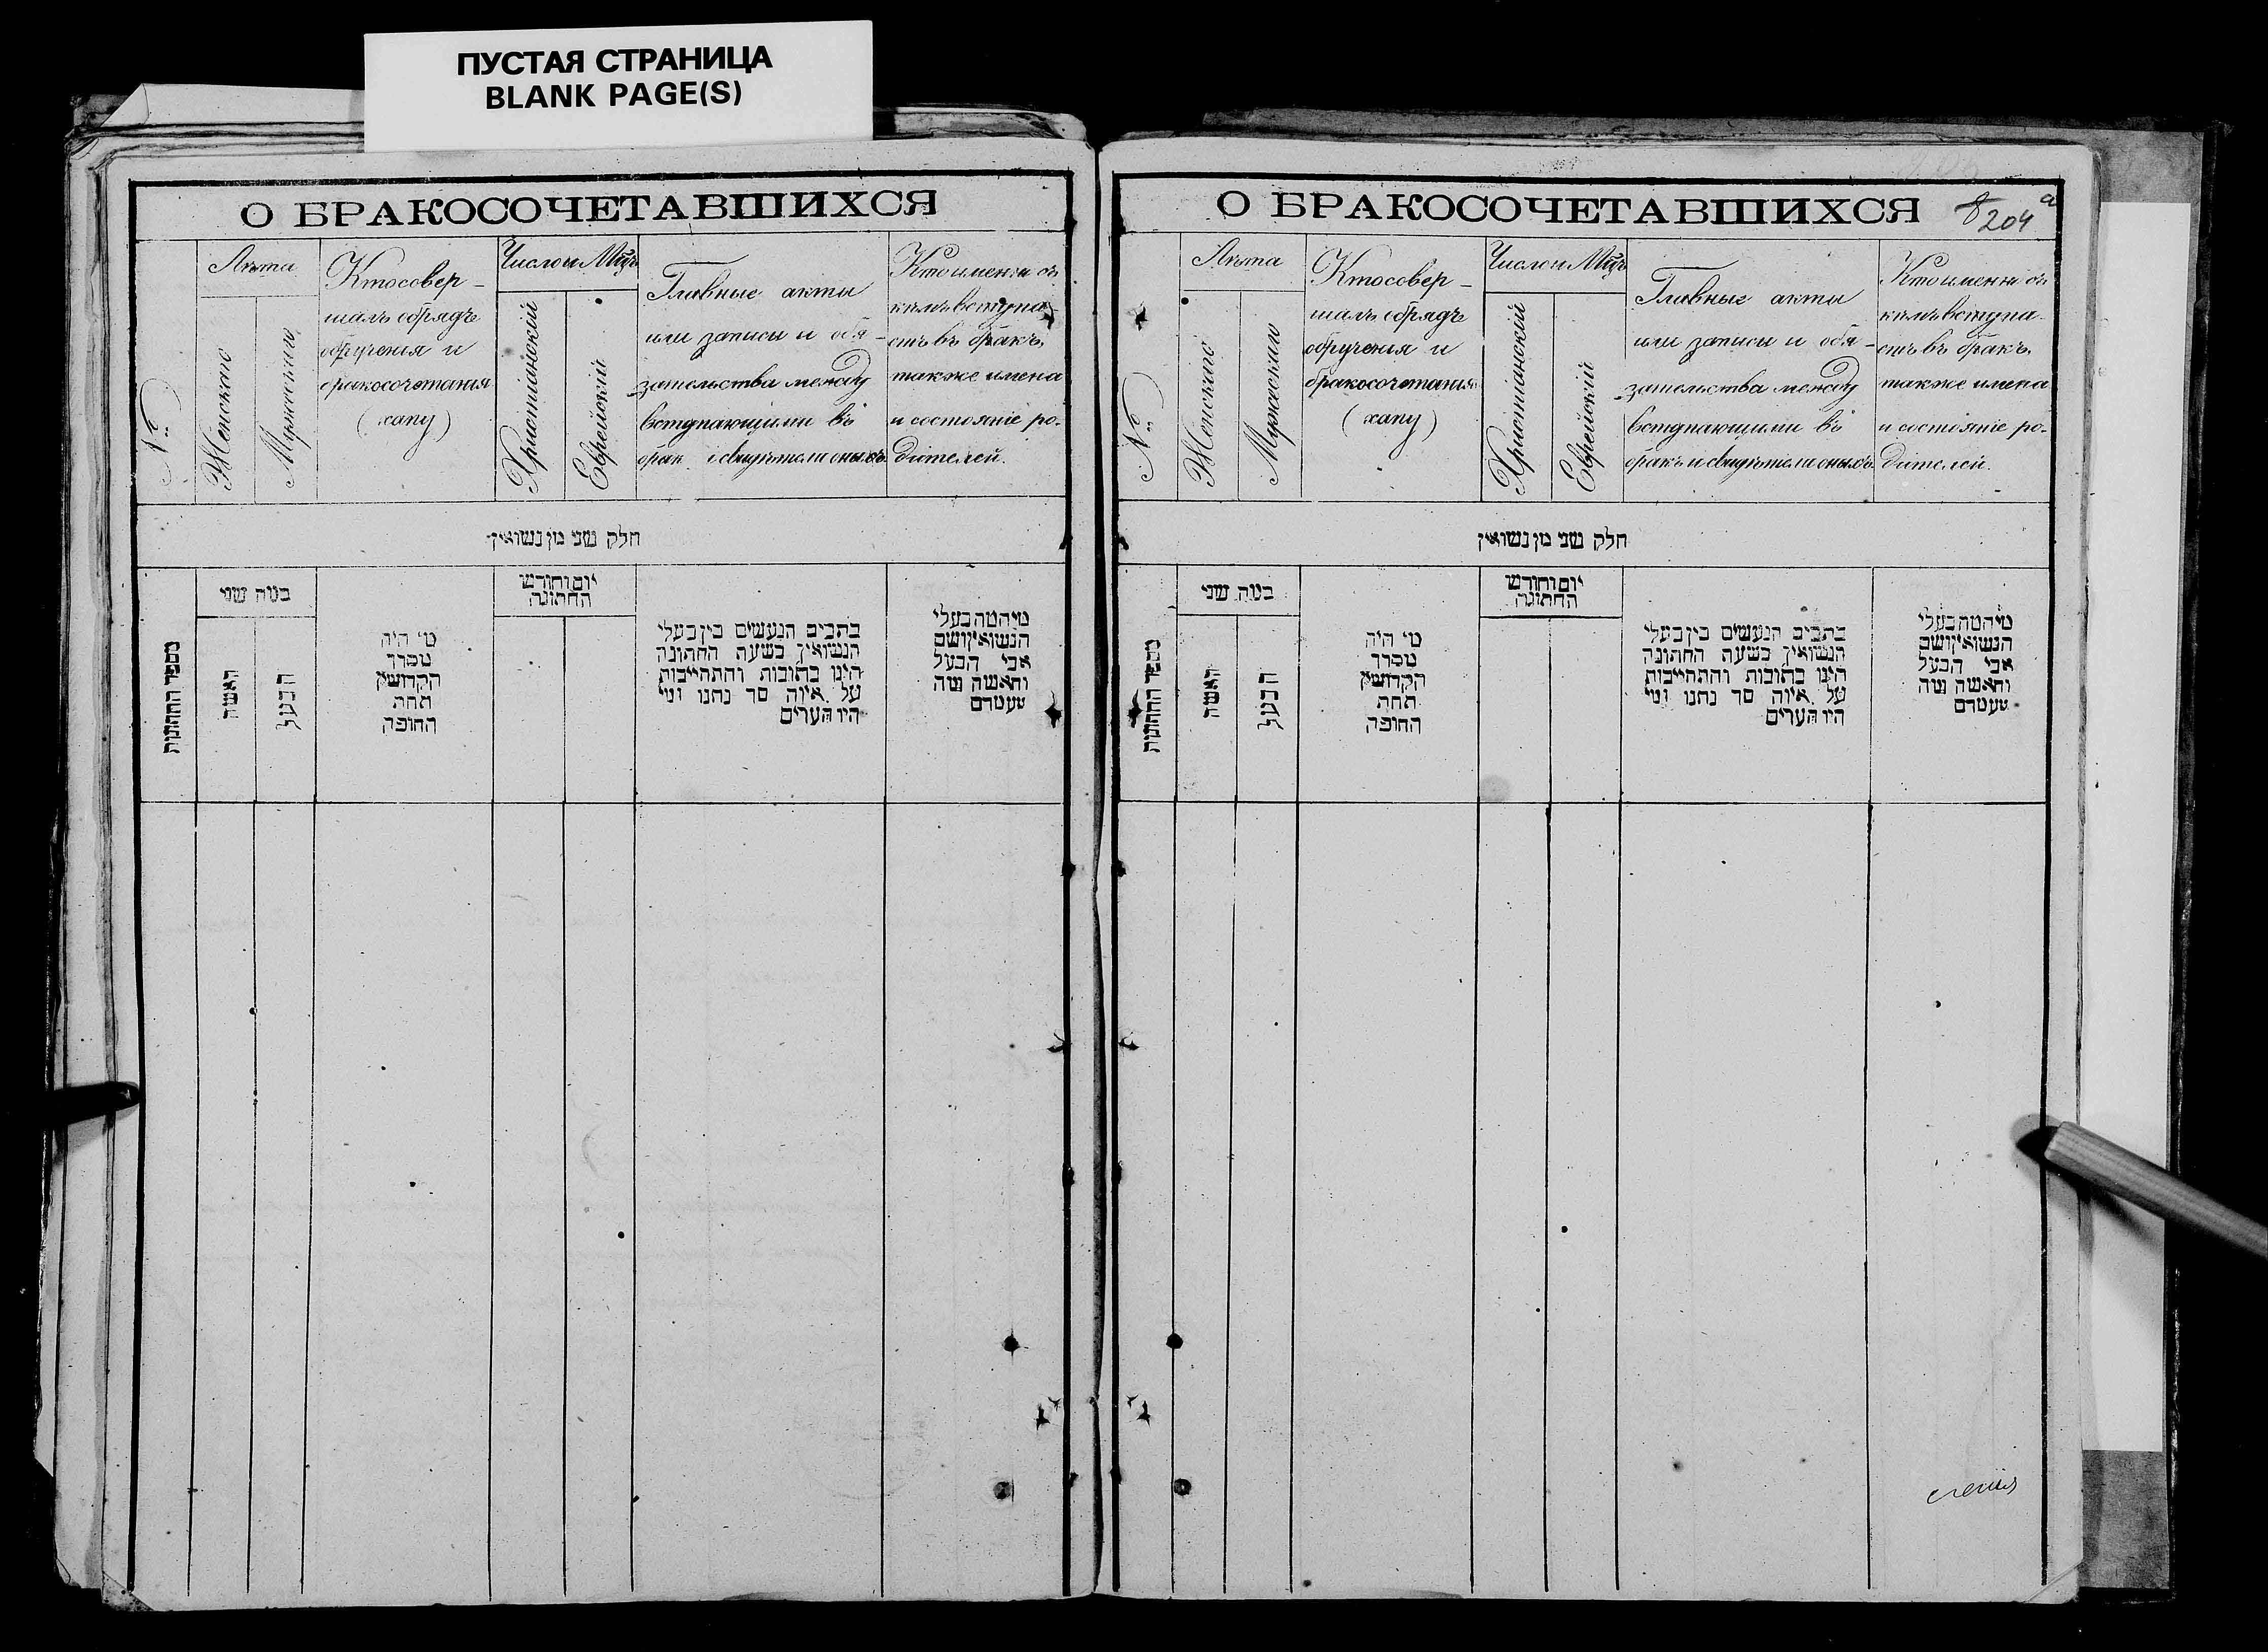 ПУСТАЯ СТРАНИЦА
BLANK PAGE(S)
О БРАКОСОЧЕТАВШИХСЯ
№
Лѣта
Женского
Мужеского
Кто совер-
шалъ обрядъ
обрученія и
бракосочетанія
(хапу)
Число и Мцъ
Христіанскій
Еврейскій
Главные акты
или записи и обя-
зательства между
вступающими въ
брак и свидѣтели оныхъ
Кто именно съ
кѣмъ вступа-
етъ въ бракъ.
также имена
и состояніе ро-
дителей.
חלק שני מן נשואין
מספר החתונות
בנוה שני
האשה
הבעל
מי היה
מסדר
הקדושין
תחת
החופה
יום וחודש
החתונה
כתבים הנעשים בין בעלי
הנשואין בשעת החתונה
היינו כתובות והתחייבות
על איזה סך נתנו ומי
היו העדים
מיהמה בעלי
הנשואין ושם
אבי הבעל
והאשה ומה
מעמדם
О БРАКОСОЧЕТАВШИХСЯ
8
204
а
№
Лѣта
Женского
Мужеского
Кто совер-
шалъ обрядъ
обрученія и
бракосочетанія
(хапу)
Число и Мцъ
Христіанскій
Еврейскій
Главные акты
или записи и обя-
зательства между
вступающими въ
бракъ и свидѣтели оныхъ
Кто именно съ
кѣмъ вступа-
етъ въ бракъ.
также имена
и состояніе ро-
дителей.
חלק שני מן נשואין
מספר החתונות
בנוה שני
האשה
הבעל
מי היה
מסדר
הקדושין
תחת
החופה
יום וחודש
החתונה
כתבים הנעשים בין בעלי
הנשואין בשעת החתונה
היינו כתובות והתחייבות
על איזה סך נתנו ומי
היו העדים
מיהמה בעלי
הנשואין ושם
אבי הבעל
והאשה ומה
מעמדם